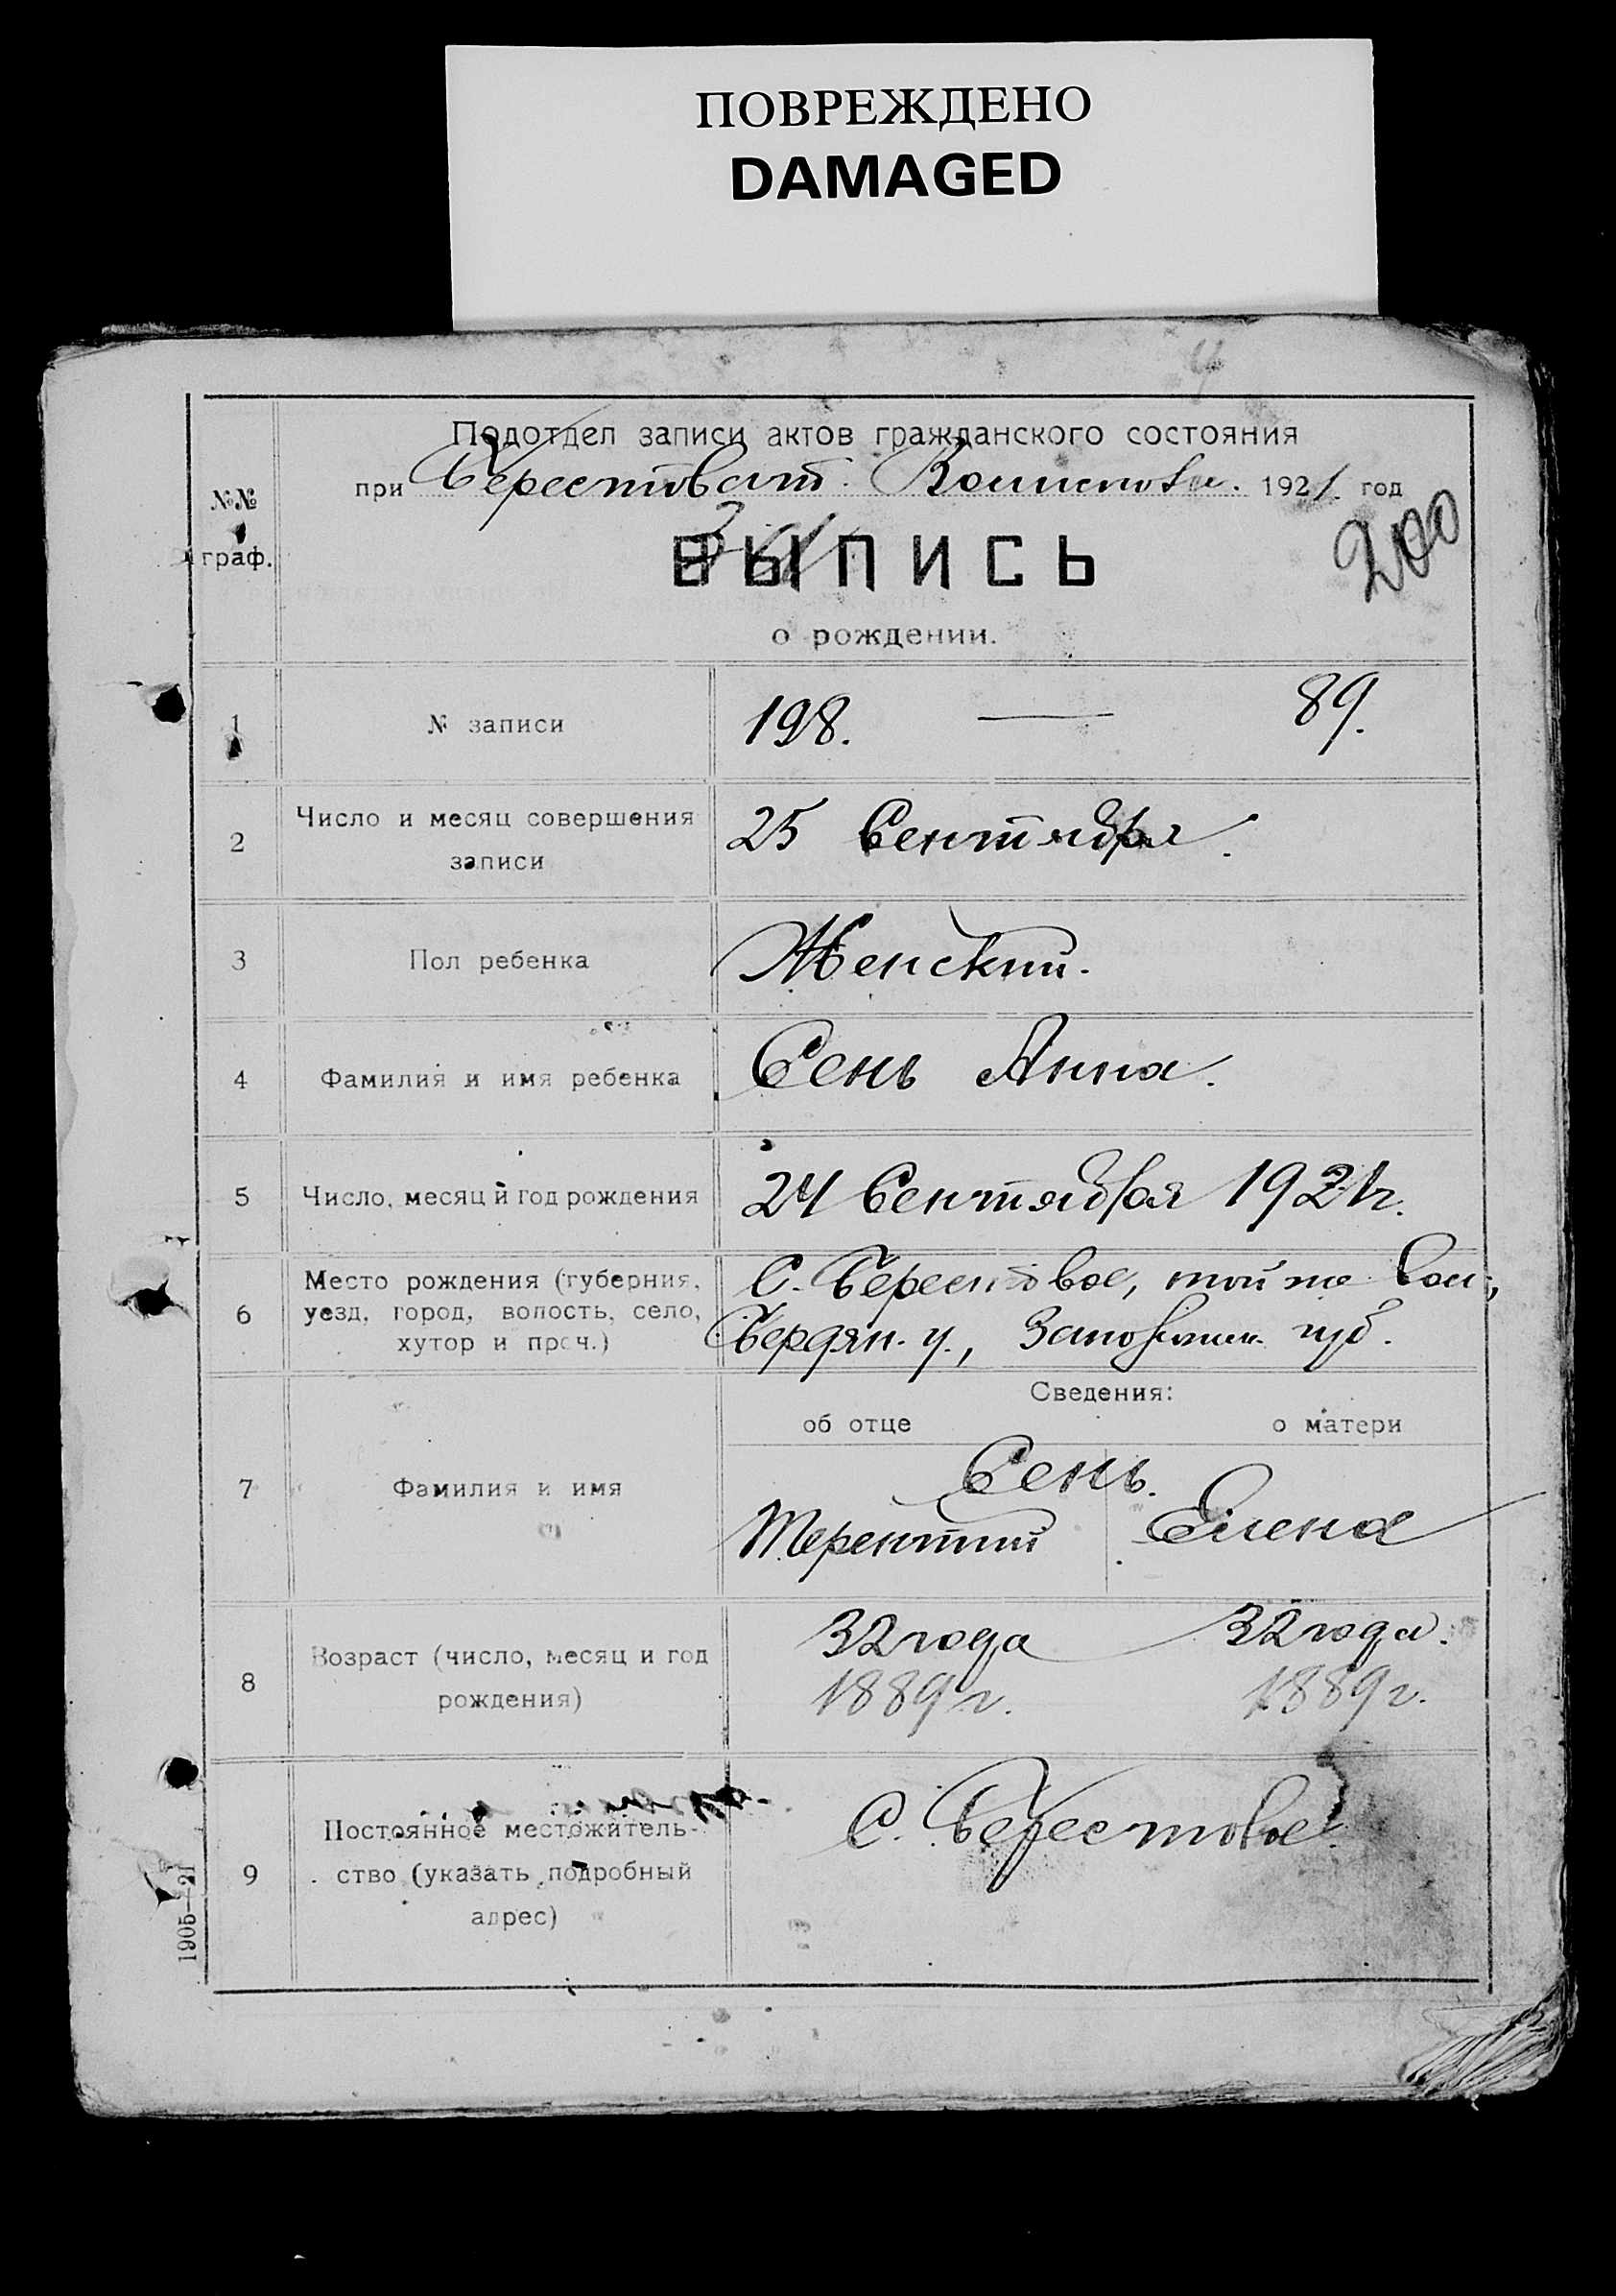 ПОВРЕЖДЕНО
DAMAGED
4
Подотдел записи актов гражданского состояния
при Берестоват. Волисполк. 1921. год
№№
граф.
ВЫПИСЬ
200
о рождении.
1 № записи 198. — 89.
2 Число и месяц совершения
записи
25 Сентября.
3 Пол ребенка Женский.
4 Фамилия и имя ребенка Сень Анна.
5 Число, месяц и год рождения 24 Сентября 1921г.
6 Место рождения (губерния,
уезд, город, волость, село,
хутор и проч.)
С. Берестовое, той же вол.,
Бердян. у., Запорожск. губ.
Сведения:
об отце о матери
7 Фамилия и имя
Сень.
Терентий Елена
8 Возраст (число, месяц и год
рождения)
32 года 32 года.
1889 г. 1889 г.
9 Постоянное местожитель-
ство (указать подробный
адрес)
С. Берестовое
1905—21